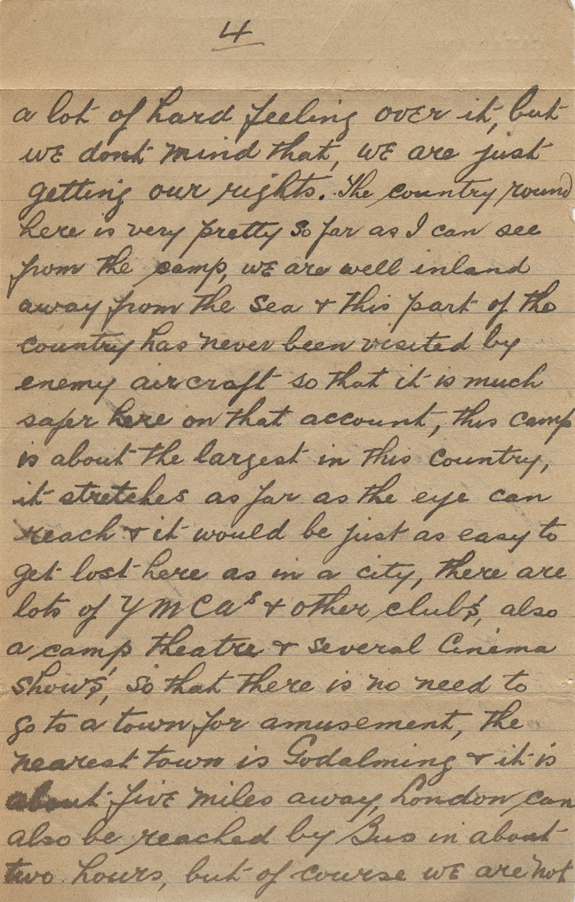 4
a lot of hard feeling over it, but
we dont mind that, we are just
getting our rights. The country round
here is very pretty so far as I can see
from the camp, we are well inland
away from the sea & this part of the
country has never been visited by
enemy aircraft so that it is much
safer here on that account, this camp
is about the largest in this country,
it stretches as far as the eye can
reach & it would be just as easy to
get lost here as in a city, there are
lots of YMCAs & other clubs, also
a camp theatre & several Cinema
shows, so that there is no need to
go to a town for amusement, the
nearest town is Godalming & it is
about five miles away, London can
also be reached by Bus in about
two hours, but of course we are not